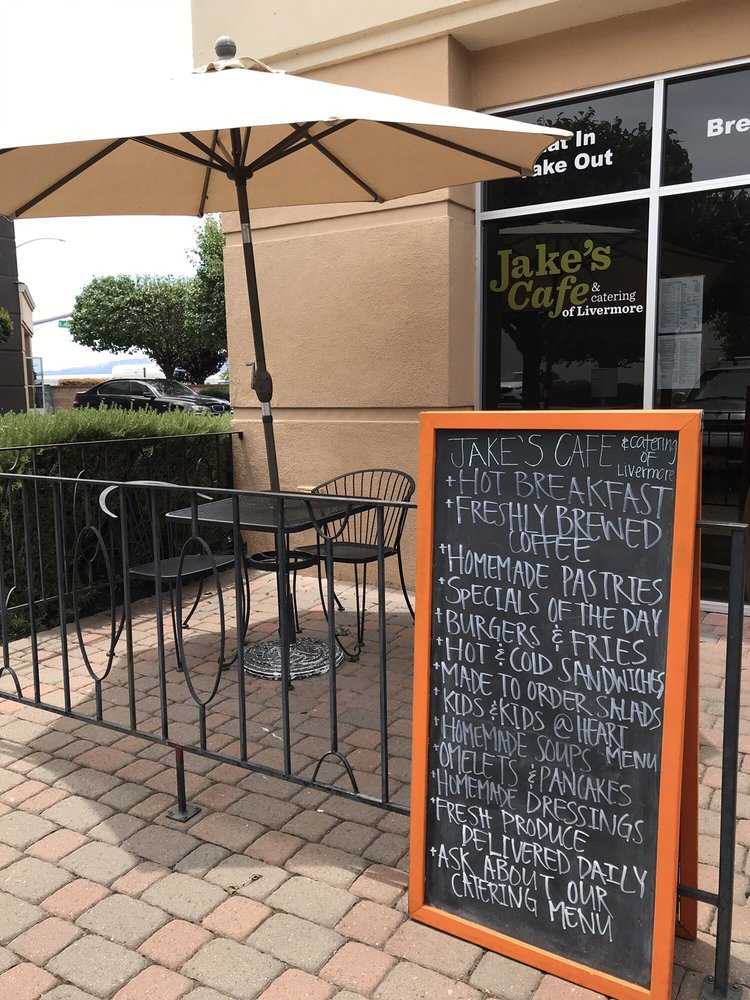 In
ake Out
Bre
Jake's
Cafe &
catering
of Livermore
JAKE'S CAFE & catering
OF
Livermore
+ HOT BREAKFAST
+ FRESHLY BREWED
COFFEE
+ HOMEMADE PASTRIES
+ SPECIALS OF THE DAY
+ BURGERS & FRIES
+ HOT & COLD SANDWICHES
+ MADE TO ORDER SALADS
+ KIDS & KIDS @ HEART
MENU
+ HOMEMADE SOUPS
+ OMELETS & PANCAKES
+ HOMEMADE DRESSINGS
+ FRESH PRODUCE
DELIVERED DAILY
+ ASK ABOUT OUR
CATERING MENU